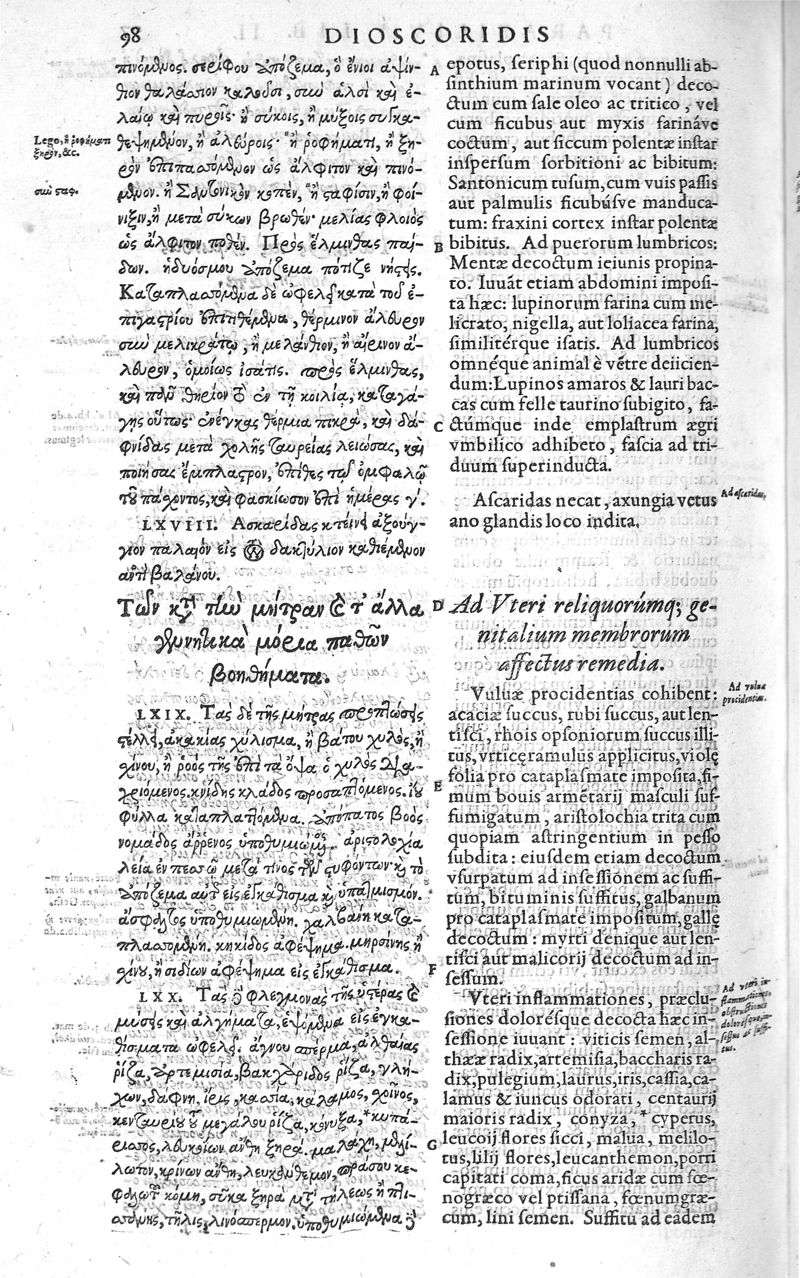 98
DIOSCORIDIS
πινόμενος. σερίφου ἀπόζεμα, ὃ ἔνιοι ἀψίν-
θιον θαλάσσιον καλοῦσι, σὺν ἁλσὶ καὶ ἐ-
λαίῳ καὶ πυροῖς· ἢ σύκοις, ἢ μύξοις συγκα-
θεψημένον, ἢ ἀλεύροις· "ἢ ῥοφήματι, ἢ ξη-
ρὸν ἐπιπασσόμενον ὡς ἄλφιτον καὶ πινό-
μενον. ἢ Σαντονικὸν κοπὲν, "ἢ σταφίσιν, ἢ φοί-
νιξιν, ἢ μετὰ σύκων βρωθέν· μελίας φλοιὸς
ὡς ἄλφιτον ποθέν. Πρὸς ἕλμινθας παί-
δων. ἡδυόσμου ἀπόζεμα πότιζε νήστεις.
Καταπλασσόμενα δὲ ὠφελεῖ κατὰ τοῦ ἐ-
πιγαστρίου ἐπιτιθέμενα, θέρμινον ἄλευρον
σὺν μελικράτῳ, ἢ μελάνθιον, ἢ αἴρινον ἄ-
λευρον, ὁμοίως ἰσάτις. πρὸς ἕλμινθας,
καὶ πᾶν θηρίον τὸ ἐν τῇ κοιλίᾳ, καταγά-
γῃς οὕτως· ἐνέγκας θέρμια πικρὰ, καὶ δα-
φνίδας μετὰ χολῆς ταυρείας λειώσας, καὶ
ποιήσας ἔμπλαστρον, ἐπίθες τῷ ὀμφαλῷ
τοῦ πάσχοντος, καὶ φασκίωσον ἐπὶ ἡμέρας γʹ.
LXVIII. Ἀσκαρίδας κτείνει ἀξούγ-
γιον παλαιὸν εἰς τὸν δακτύλιον καθιέμενον
ἀντὶ βαλάνου.
Τῶν κατὰ τὴν μήτραν καὶ τὰ ἄλλα
γυναικικὰ μόρια παθῶν
βοηθήματα.
LXIX. Τὰς δὲ τῆς μήτρας προπτώσεις
στέλλει, ἀκακίας χύλισμα, ἢ βάτου χυλὸς, ἢ
σχίνου, ἢ ῥοὸς τῆς ἐπὶ τὰ ὄψα ὁ χυλὸς δια-
χριόμενος. κνίδης κλάδος προσαπτόμενος. ἴου
φύλλα καταπλασσόμενα. ἀπόπατος βοὸς
νομάδος ἄῤῥενος ὑποθυμιώμενος. ἀριστολοχία
λεία ἐν πεσσῷ μετά τινος τῶν στυφόντων· καὶ τὸ
ἀπόζεμα αὐτῆς εἰς ἐγκάθισμα καὶ ὑπατμισμόν.
ἄσφαλτος ὑποθυμιωμένη. χαλβάνη κατα-
πλασσομένη. κηκίδος ἀφέψημα. μυρσίνης ἢ
σχίνου, ἢ σιδίων ἀφέψημα εἰς ἐγκάθισμα.
LXX. Τὰς δὲ φλεγμονὰς τῆς ὑστέρας καὶ
μύσεις καὶ ἀλγήματα, ἑψόμενα εἰς ἐγκα-
θίσματα ὠφελεῖ. ἄγνου σπέρμα, ἀλθαίας
ῥίζα, ἀρτεμισία, βακχάριδος ῥίζα, γλή-
χων, δάφνη, ἶρις, κασία, κάλαμος, σχοῖνος,
κενταυρίου τοῦ μεγάλου ῥίζα, κόνυζα, *κυπά-
ρισσος, λευκοίων ἄνθη ξηρά. μαλάχη, μελί-
λωτον, κρίνων ἄνθη, λευκάνθεμον, πράσου κε-
φαλωτοῦ κόμη, σῦκα ξηρὰ μετὰ τήλεως ἢ πτι-
σάνης, τῆλις, λινόσπερμον. ὑποθυμιώμενα δὲ
A epotus, seriphi (quod nonnulli ab-
sinthium marinum vocant) deco-
ctum cum sale oleo ac tritico, vel
cum ficubus aut myxis farináve
coctum, aut siccum polentæ instar
inspersum sorbitioni ac bibitum:
Santonicum tusum, cum vuis passis
aut palmulis ficubúsve manduca-
tum: fraxini cortex instar polentæ
B bibitus. Ad puerorum lumbricos:
Mentæ decoctum ieiunis propina-
to. Iuuãt etiam abdomini imposi-
ta hæc: lupinorum farina cum me-
licrato, nigella, aut loliacea farina,
similitérque isatis. Ad lumbricos
omnéque animal è vẽtre deiicien-
dum: Lupinos amaros & lauri bac-
cas cum felle taurino subigito, fa-
C ctúmque inde emplastrum ægri
vmbilico adhibeto, fascia ad tri-
duum superinducta.
Ascaridas necat, axungia vetus
ano glandis loco indita.
D Ad Vteri reliquorúmq; ge-
nitalium membrorum
affectus remedia.
Vuluæ procidentias cohibent:
acaciæ succus, rubi succus, aut len-
tisci, rhois opsoniorum succus illi-
tus, vrticę ramulus applicitus, violę
folia pro cataplasmate imposita, fi-
E mum bouis armẽtarij masculi suf-
fumigatum, aristolochia trita cum
quopiam astringentium in pesso
subdita: eiusdem etiam decoctum
vsurpatum ad insessionem ac suffi-
tum, bituminis suffitus, galbanum
pro cataplasmate impositum, gallę
decoctum: myrti denique aut len-
tisci aut malicorij decoctum ad in-
F sessum.
Vteri inflammationes, præclu-
siones dolorésque decocta hæc in-
sessione iuuant: viticis semen, al-
thææ radix, artemisia, baccharis ra-
dix, pulegium, laurus, iris, cassia, ca-
lamus & iuncus odorati, centaurij
maioris radix, conyza, *cyperus,
G leucoij flores sicci, malua, melilo-
tus, lilij flores, leucanthemon, porri
capitati coma, ficus aridæ cum fœ-
nogræco vel ptissana, fœnumgræ-
cum, lini semen. Suffitu ad eadem
Lego, ἢ ῥοφήματι
ξηρὸν, &c.
σὺν σαφ.
Ad ascaridas.
Ad vuluæ
procidentias.
Ad vteri in-
flammationes,
obstructiones
dolorésque, in-
sessus & suffi-
tus.